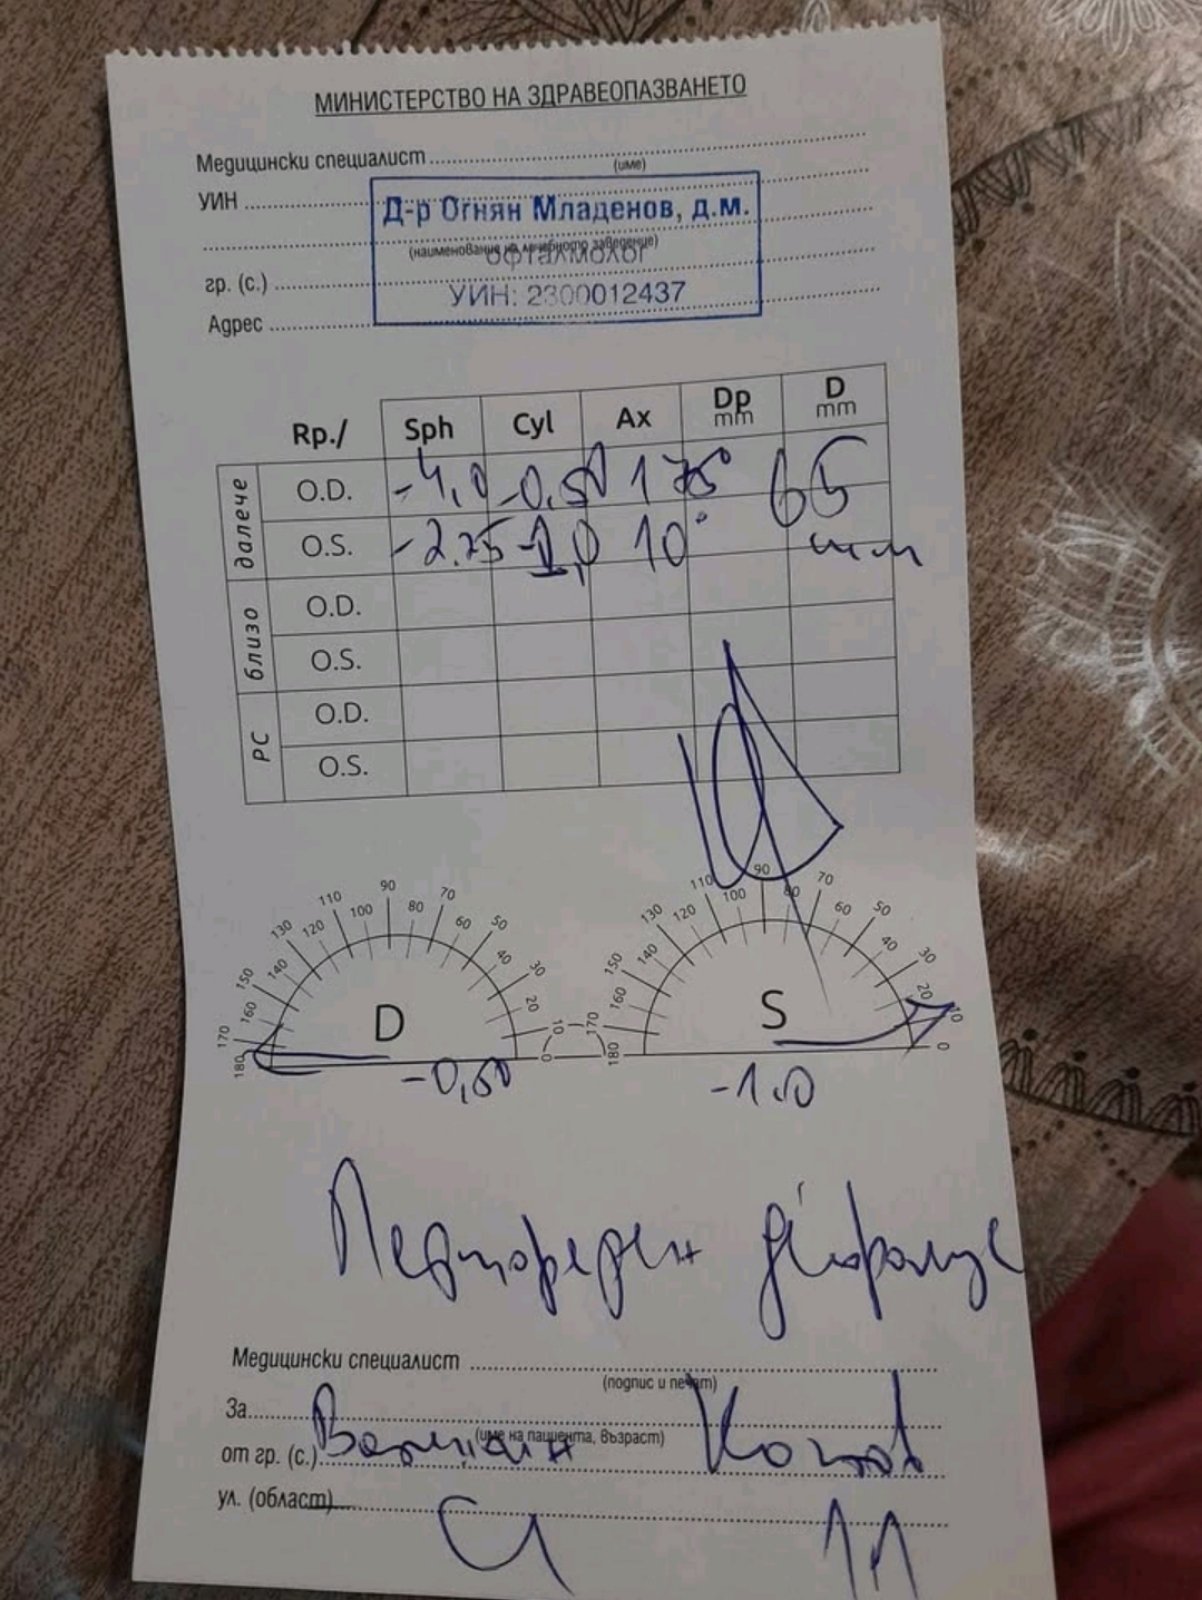 МИНИСТЕРСТВО НА ЗДРАВЕОПАЗВАНЕТО
Медицински специалист
(име)
УИН
Д-р Огнян Младенов, д.м.
(наименование на лечебното заведение)
офталмолог
гр. (с.)
УИН: 2300012437
Адрес
Rp./ Sph Cyl Ax Dp mm D mm
далече O.D. -4,0 -0,50 175° 65
O.S. -2.75 -1,0 10° mm
близо O.D.
O.S.
PC O.D.
O.S.
180 170 160 150 140 130 120 110 100 90 80 70 60 50 40 30 20 10 0
D
-0,50
180 170 160 150 140 130 120 110 100 90 80 70 60 50 40 30 20 10 0
S
-1.0
Медицински специалист
(подпис и печат)
За
(име на пациента, възраст)
от гр. (с.)
ул. (област)